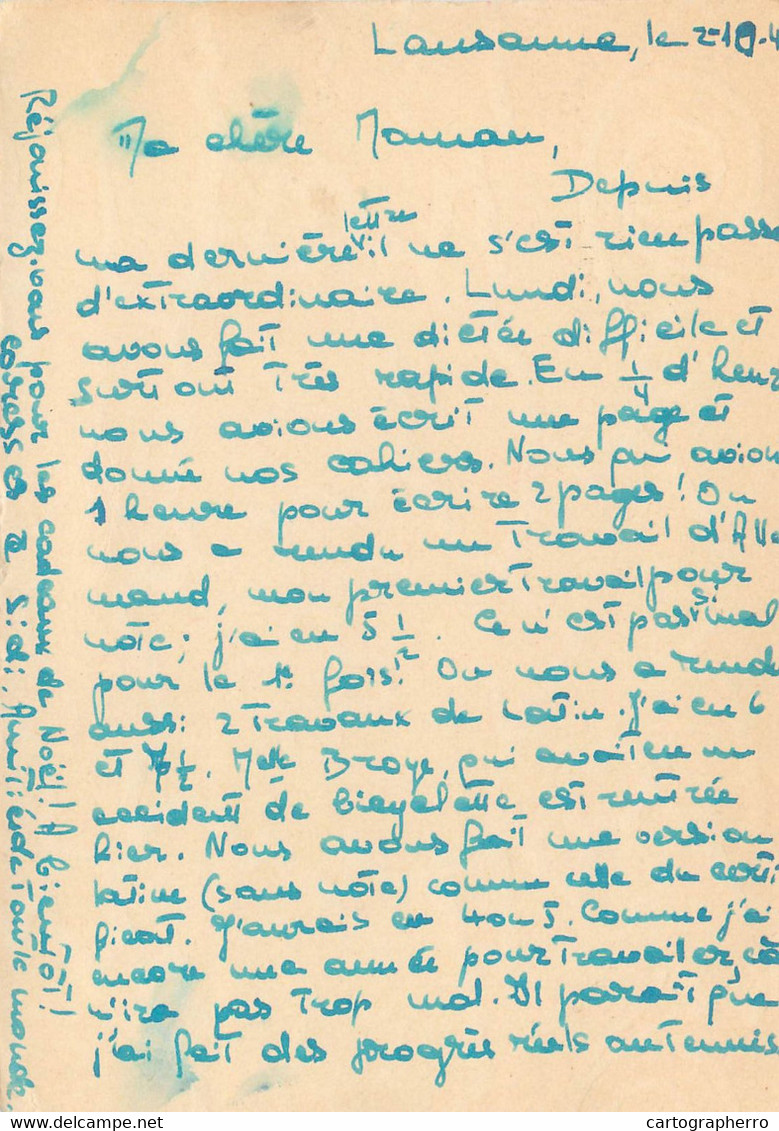 Lausanne, le 2-10-4
Ma chère Maman,
Depuis
ma dernière lettre il ne s'est rien passé
d'extraordinaire. Lundi, nous
avons fait une dictée difficile et
surtout très rapide. En 1/4 d'heure
nous avions écrit une page et
donné nos cahiers. Nous qui avions
1 heure pour écrire 2 pages! On
nous a rendu un travail d'Alle
mand, mon premier travail pour
note; j'ai eu 5 1/2. Ce n'est pas si mal
pour la 1e fois! On nous a rendu
aussi 2 travaux de Latin. J'ai eu 6
et 7 1/2. Melle Broye, qui avait eu un
accident de bicyclette est rentrée
hier. Nous avons fait une version
latine (sans note) comme celle du certi
ficat. J'aurais eu 4 ou 5. Comme j'ai
encore une année pour travailler, ça
n'ira pas trop mal. Il paraît que
j'ai fait des progrès réels au tennis
Réjouissez-vous pour les cadeaux de Noël! A bientôt!
caresses à Sidi. Amitiés de tout le monde.
cartographerro